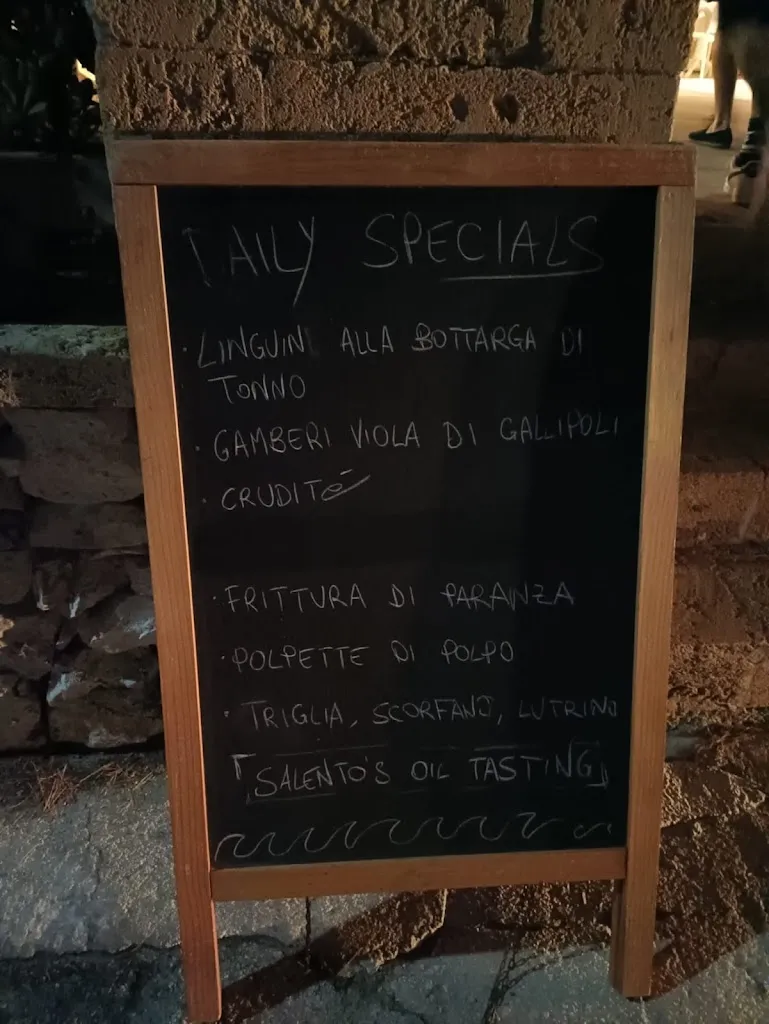 DAILY SPECIALS
· LINGUINI ALLA BOTTARGA DI
TONNO
· GAMBERI VIOLA DI GALLIPOLI
· CRUDITé
· FRITTURA DI PARANZA
· POLPETTE DI POLPO
· TRIGLIA, SCORFANO, LUTRINO
SALENTO'S OIL TASTING